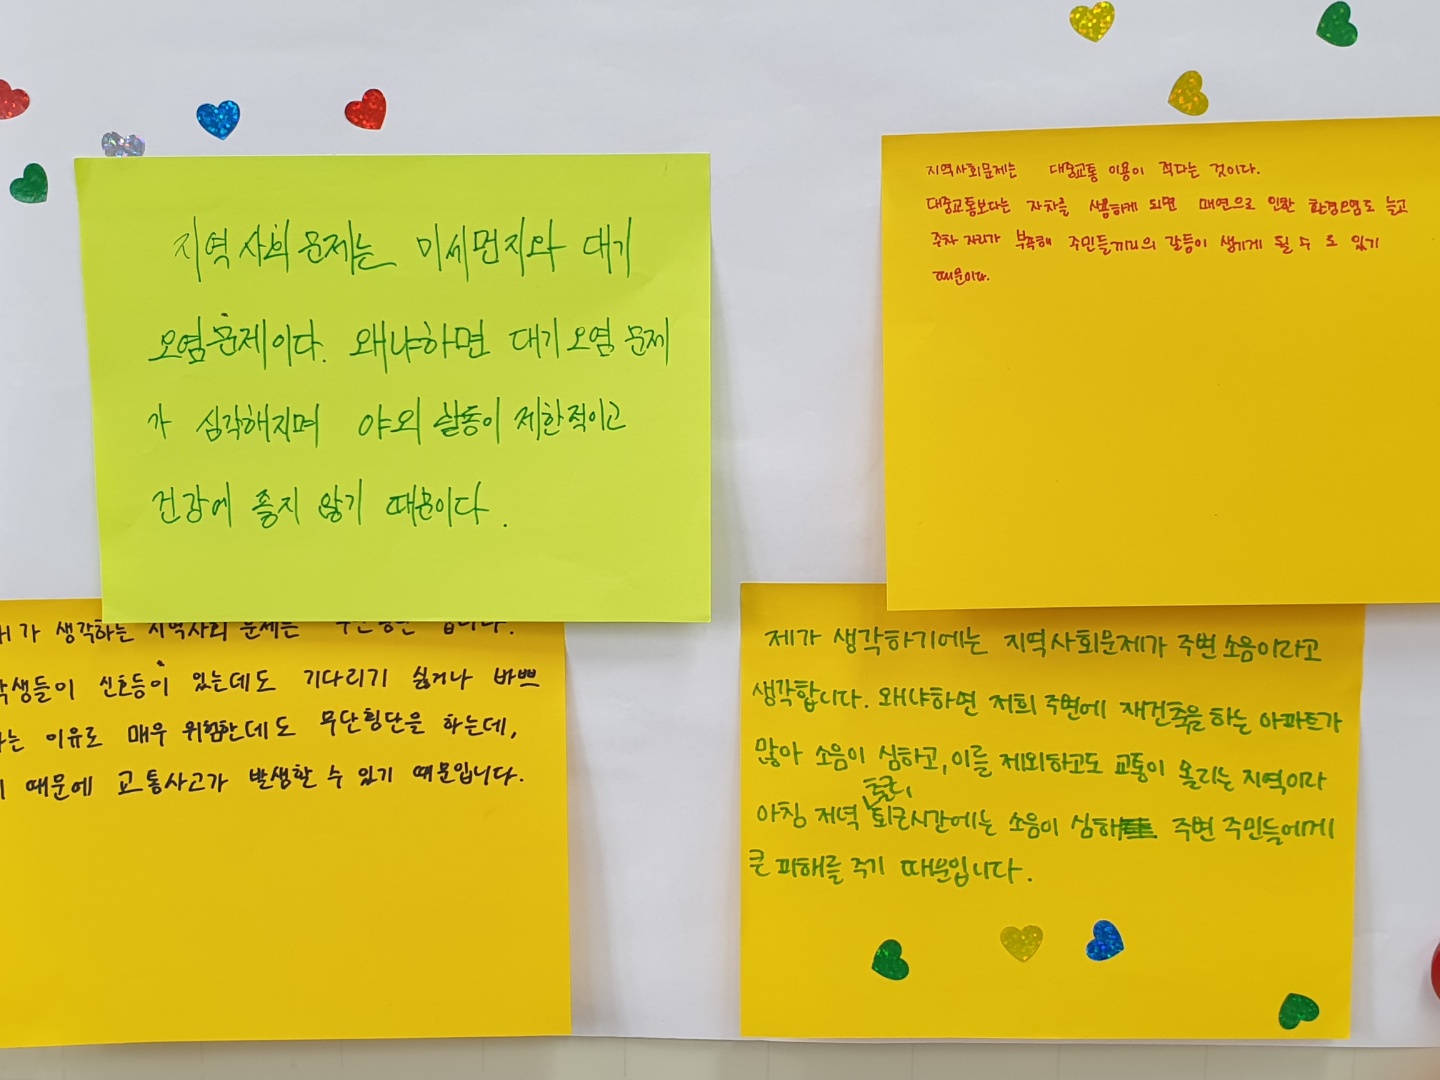 지역사회 문제는 미세먼지와 대기
오염문제이다. 왜냐하면 대기오염 문제
가 심각해지며 야외 활동이 제한적이고
건강에 좋지 않기 때문이다.
지역사회문제는 대중교통 이용이 적다는 것이다.
대중교통보다는 자차를 사용하게 되면 매연으로 인한 환경오염도 늘고
주차 자리가 부족해 주민들끼리의 갈등이 생기게 될 수 도 있기
때문이다.
가 생각하는 지역사회 문제는 입니다.
학생들이 신호등이 있는데도 기다리기 싫거나 바쁘
다는 이유로 매우 위험한데도 무단횡단을 하는데,
때문에 교통사고가 발생할 수 있기 때문입니다.
제가 생각하기에는 지역사회문제가 주변 소음이라고
생각합니다. 왜냐하면 저희 주변에 재건축을 하는 아파트가
많아 소음이 심하고, 이를 제외하고도 교통이 몰리는 지역이라
아침 저녁 출근, 퇴근시간에는 소음이 심해 주변 주민들에게
큰 피해를 주기 때문입니다.